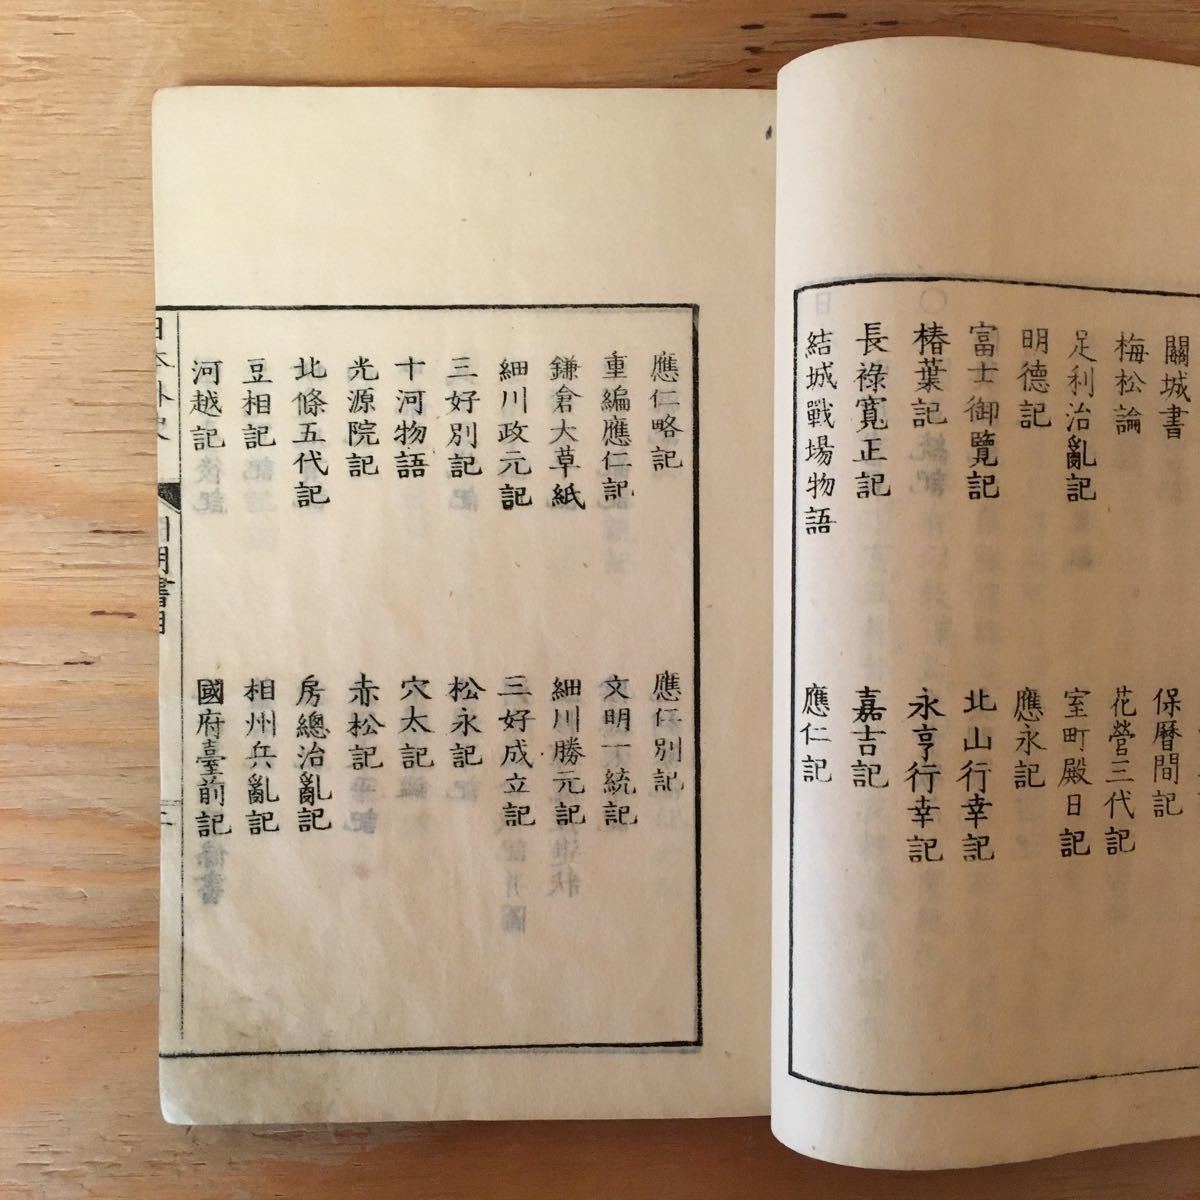 關城書
保曆間記
梅松論
花營三代記
足利治亂記
室町殿日記
明德記
應永記
富士御覽記
北山行幸記
椿葉記
永享行幸記
長祿寛正記
嘉吉記
結城戰場物語
應仁記
應仁略記
應仁別記
重編應仁記
文明一統記
鎌倉大草紙
細川勝元記
細川政元記
三好成立記
三好別記
松永記
十河物語
穴太記
光源院記
赤松記
北條五代記
房總治亂記
豆相記
相州兵亂記
河越記
國府臺前記
日本外史
引用書目
二